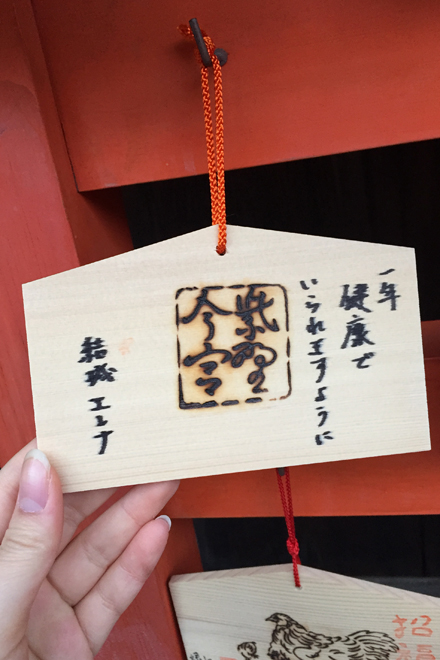 一年
健康で
いられますように
紫野
今宮
結城 エレナ
招福